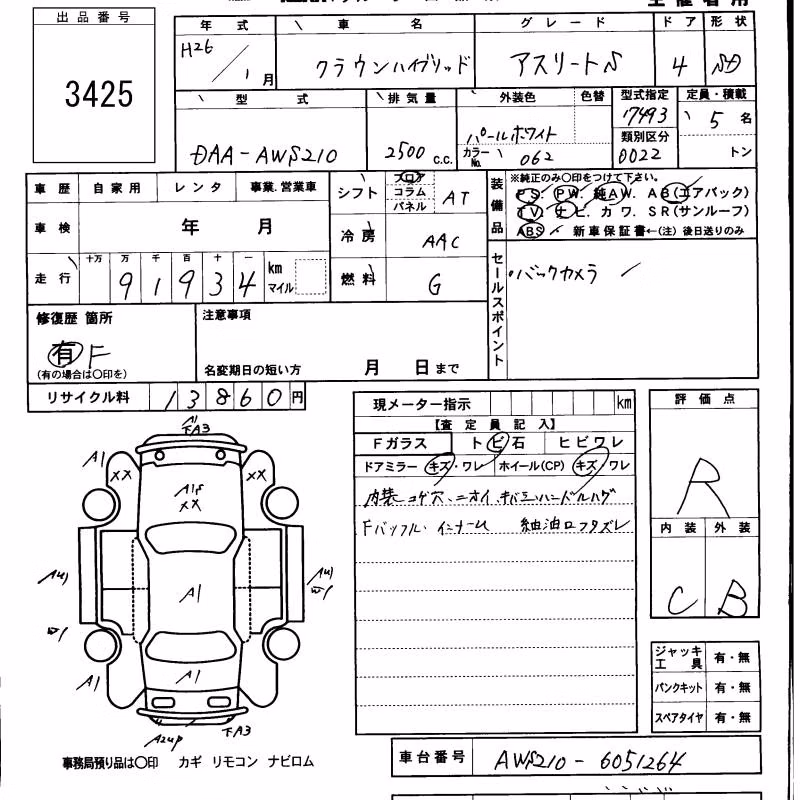 出品番号
3425
年式 車名 グレード ドア 形状
H26/1月 クラウンハイブリッド アスリートS 4 SD
型式 排気量 外装色 色替 型式指定 定員・積載
DAA-AWS210 2500 c.c. パールホワイト 17493 5 名
カラーNo. 062 類別区分 0022 トン
車歴 自家用 レンタ 事業.営業車
車検 年 月
走行 十万 万 千 百 十 一
9 1 9 3 4 km マイル
シフト フロア コラム パネル AT
冷房 AAC
燃料 G
装備品
※純正のみ〇印をつけて下さい。
PS. PW. 純AW. AB(エアバック)
TV. ナビ. カワ. SR(サンルーフ)
ABS 新車保証書←(注)後日送りのみ
セールスポイント
バックカメラ
修復歴 箇所
有 F
(有の場合は〇印を)
注意事項
名変期日の短い方 月 日まで
リサイクル料 13860円
現メーター指示 km
【査定員記入】
Fガラス トビ石 ヒビワレ
ドアミラー キズ・ワレ ホイール(CP) キズ/ワレ
内装コゲ穴、ニオイ、キバミ、ハンドルハゲ
Fバッフル・インナーU 給油口フタズレ
評価点
R
内装 外装
C B
ジャッキ工具 有・無
パンクキット 有・無
スペアタイヤ 有・無
A1
下A3
A1
XX
XX
A1
XX
A1
A1
A1
下A3
事務局預り品は〇印 カギ リモコン ナビロム
車台番号 AWS210-6051264